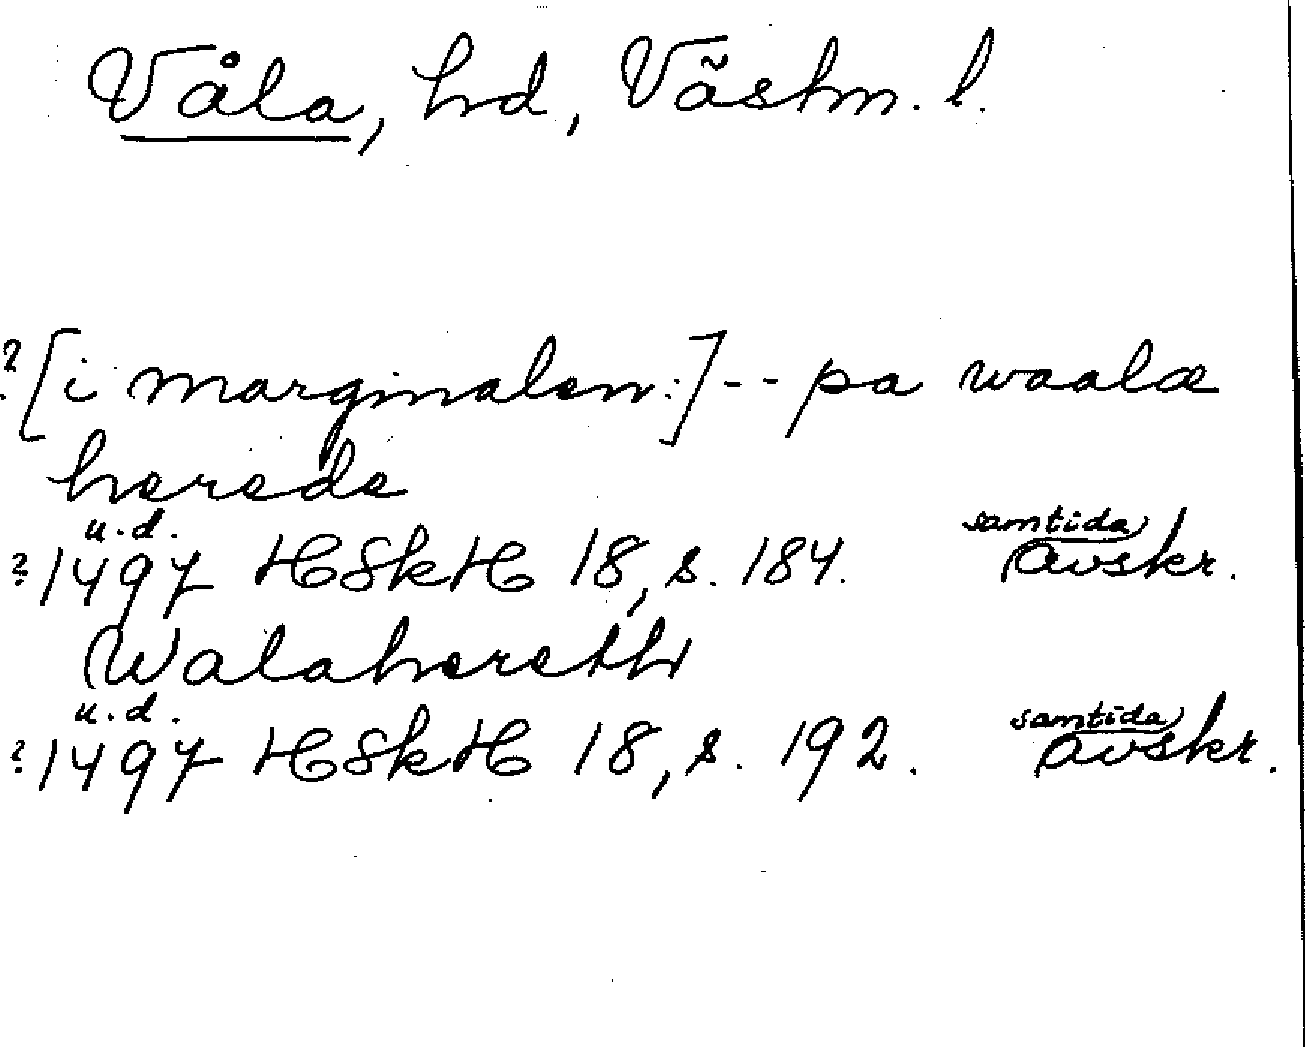 Våla, hd, Västm. l.
? [i marginalen:] -- pa waalæ
herede
u.d.
? 1497 HSkH 18, s. 184. samtida avskr.
Walahereth
u.d.
? 1497 HSkH 18, s. 192. samtida avskr.